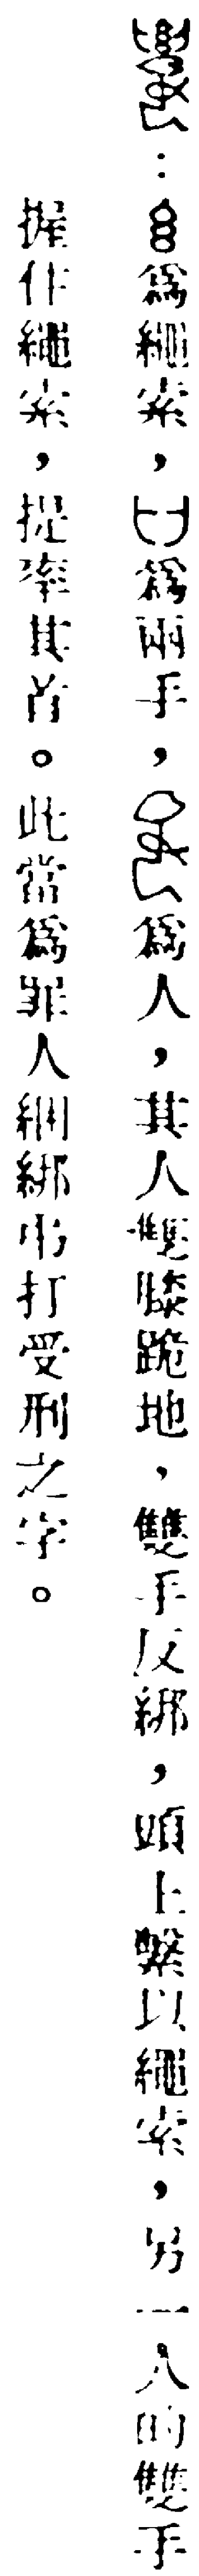 ：為繩索，為兩手，為人，其人雙膝跪地，雙手反綁，頭上繫以繩索，另一人的雙手
握住繩索，提率其首。此當為罪人綑綁吊打受刑之字。